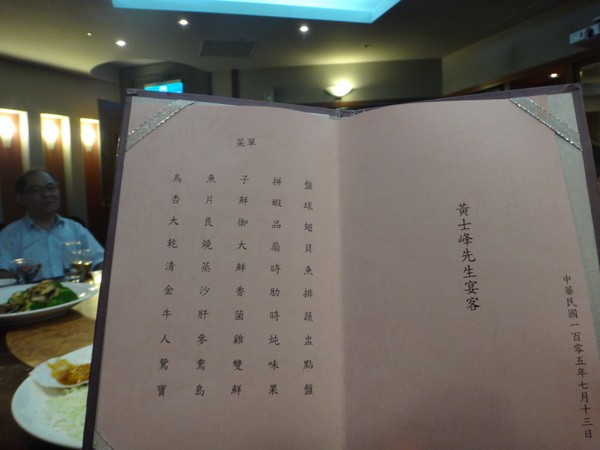 菜單
烏魚子拼盤
杏片鮮蝦球
大良御品翅
乾燒大扇貝
清蒸鮮時魚
金沙香肋排
牛肝菌時蔬
人參雞燉盅
鴛鴦雙味點
寶島鮮果盤
黃士峰先生宴客
中華民國一百零五年七月十三日